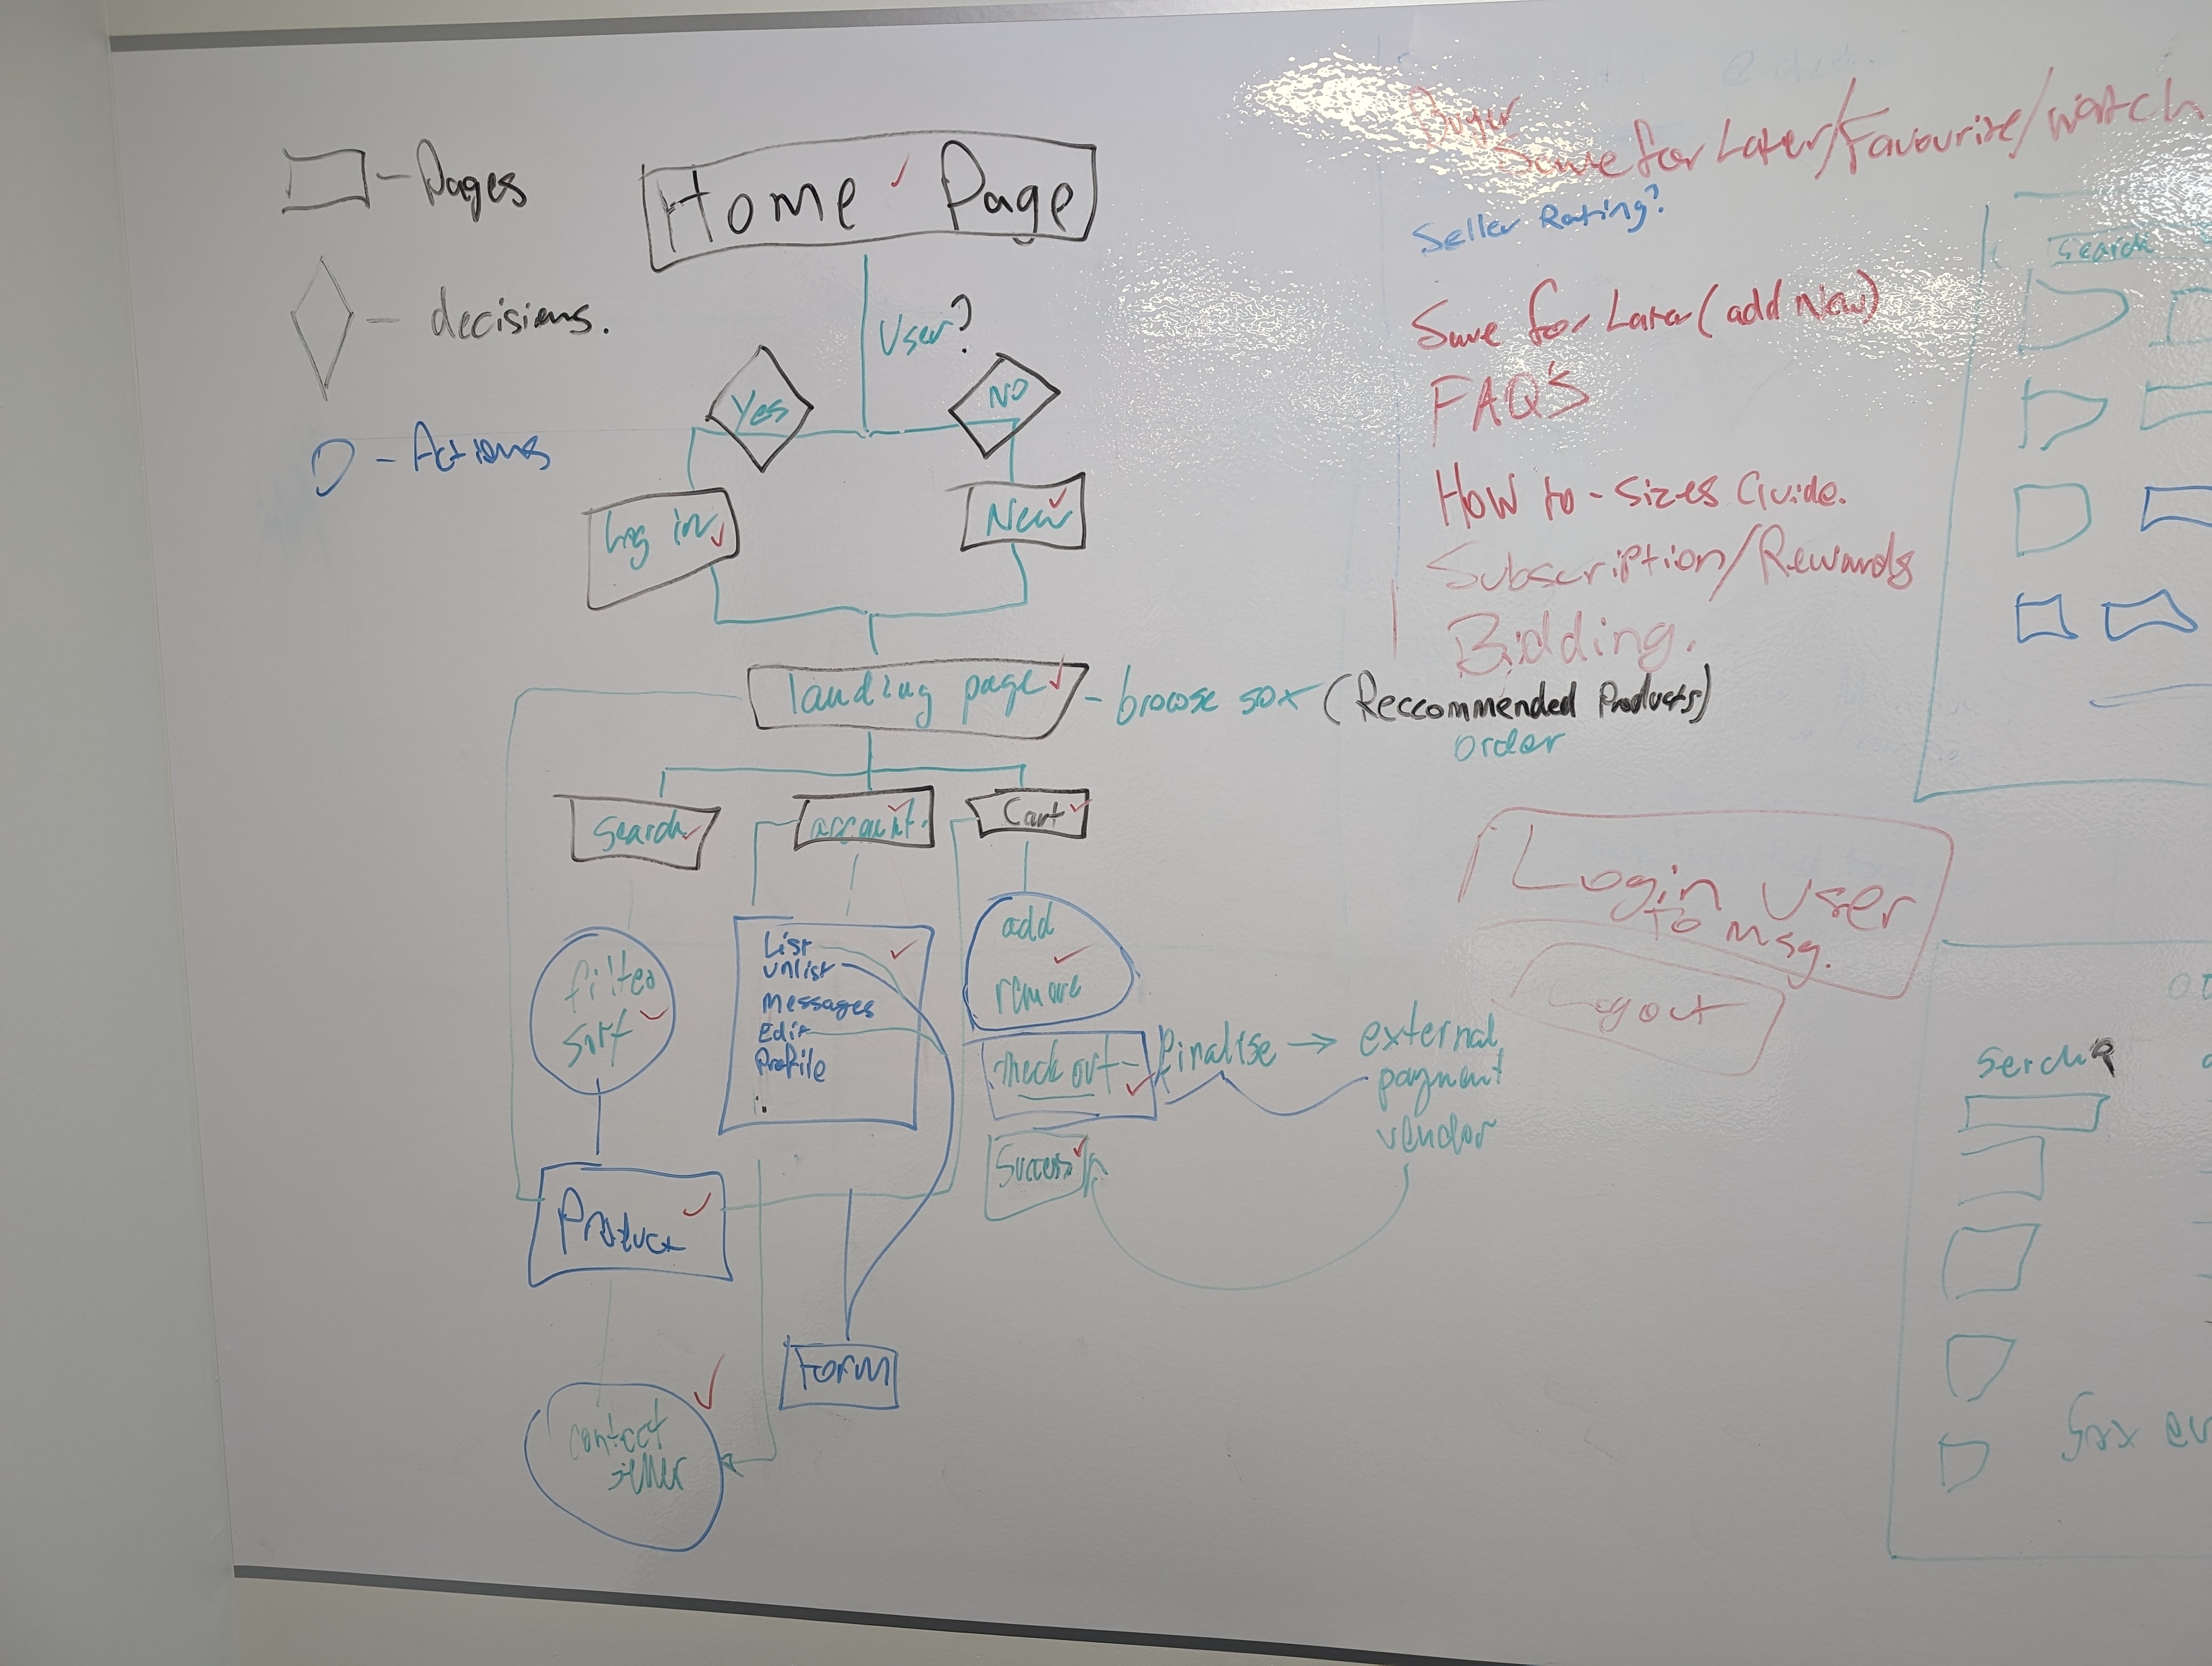 Pages
decisions.
Actions
Home Page
User?
Yes
NO
Log in
New
landing page - browse sox (Reccommended Products)
order
Search
account
Cart
filter
sort
List
unlist
Messages
Edit
Profile
add
remove
check out - finalise → external
payment
vendor
Success
Product
Form
contact
seller
Buyer
Save for Later/Favourite/watch
Seller Rating?
Save for Later (add New)
FAQ's
How to - Sizes Guide.
Subscription/Rewards
Bidding.
Login User
To Msg.
Logout
Search
Serch